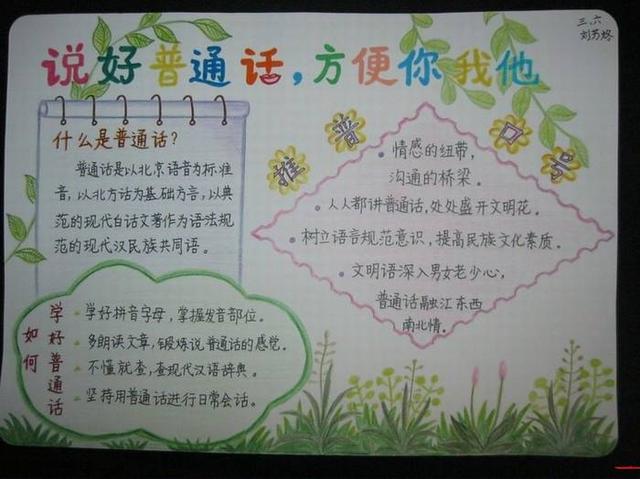 三.六
说好普通话,方便你我他
什么是普通话?
普通话是以北京语音为标准
音,以北方话为基础方言,以典
范的现代白话文著作为语法规
范的现代汉民族共同语。
推普口号
情感的纽带,
沟通的桥梁。
人人都讲普通话,处处盛开文明花。
树立语言规范意识,提高民族文化素质。
文明语深入男女老少心,
普通话融汇东西
南北情。
如何
学好普通话
学好拼音字母,掌握发音部位。
多朗读文章,锻炼说普通话的感觉。
不懂就查,查现代汉语辞典。
坚持用普通话进行日常会话。